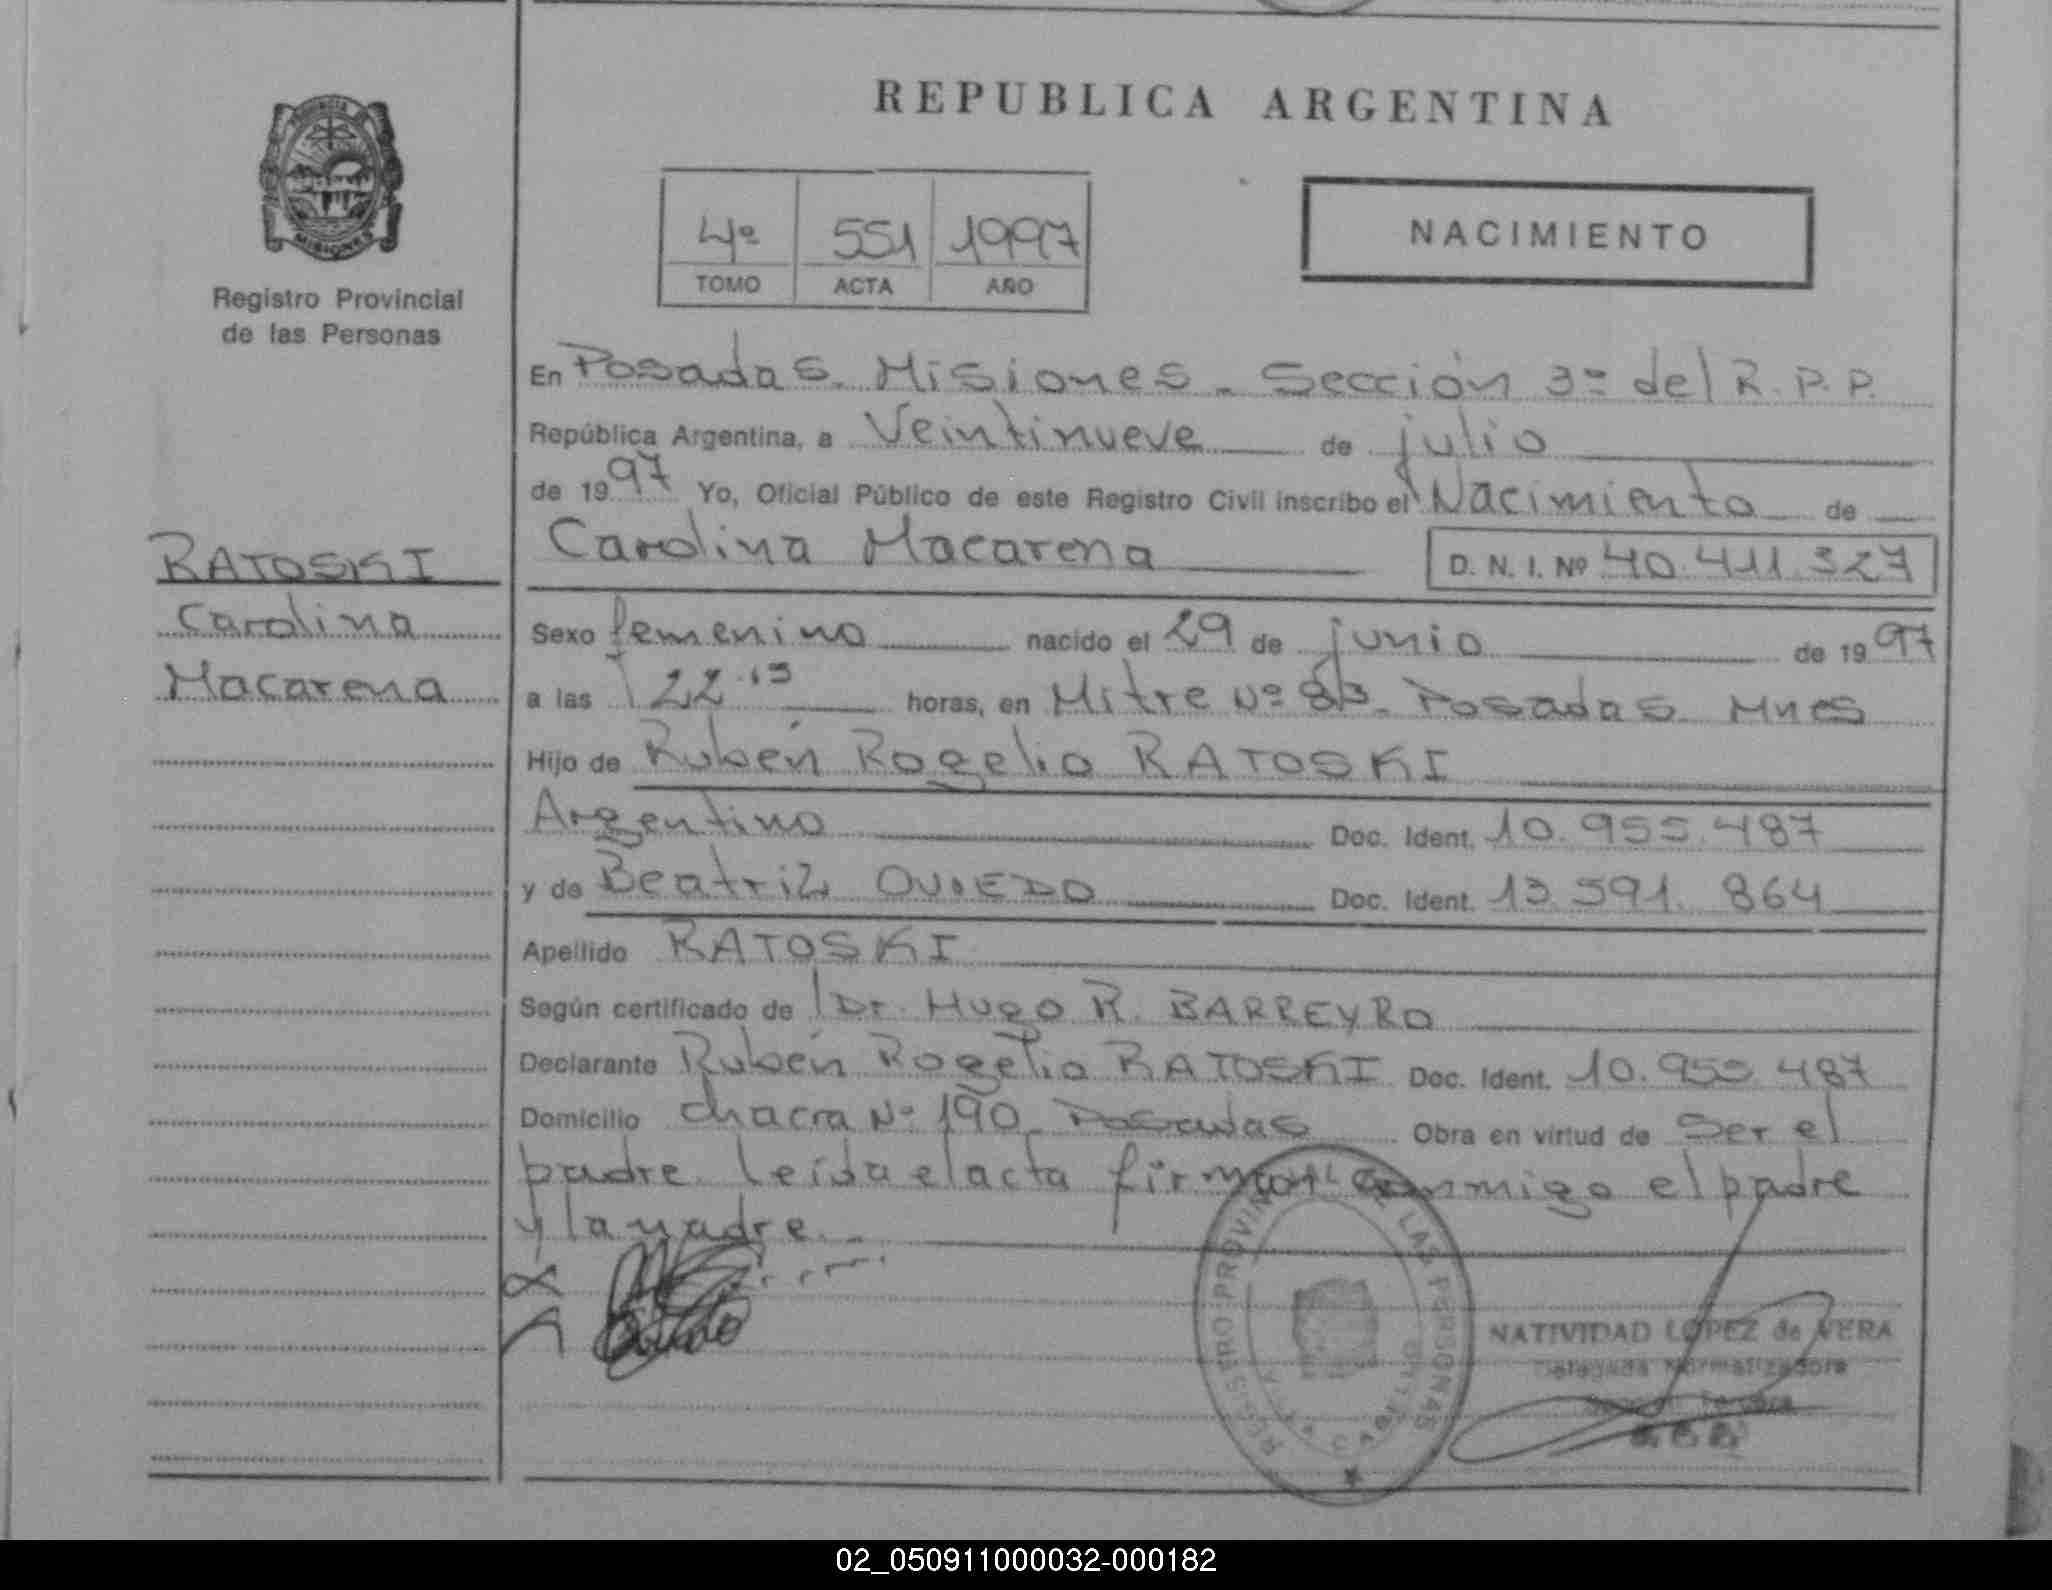 REPUBLICA ARGENTINA
PROVINCIA DE
MISIONES
Registro Provincial
de las Personas
4º 551 1997
TOMO ACTA AÑO
NACIMIENTO
En Posadas. Misiones - Sección 3º del R.P.P.
República Argentina, a Veintinueve de julio
de 1997 Yo, Oficial Público de este Registro Civil inscribo el Nacimiento de
Carolina Macarena D. N. I. Nº 40.411.327
RATOSKI
Carolina
Macarena
Sexo femenino nacido el 29 de junio de 1997
a las 22.15 horas, en Mitre Nº Posadas Mnes
Hijo de Rubén Rogelio RATOSKI
Argentino Doc. Ident. 10.955.487
y de Beatriz OVIEDO Doc. Ident. 13.591.864
Apellido RATOSKI
Según certificado de Dr. Hugo R. BARREYRO
Declarante Rubén Rogelio RATOSKI Doc. Ident. 10.955.487
Domicilio chacra Nº 190 - Posadas Obra en virtud de Ser el
padre. Leída el acta firman conmigo el padre
y la madre. -
REGISTRO PROVINCIAL DE LAS PERSONAS
NATIVIDAD LOPEZ de VERA
Delegada Normalizadora
02_050911000032-000182